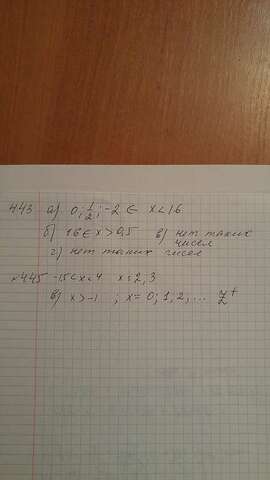 443 а) 0; 1/2; -2 ∈ x < 16
б) 16 ∈ x > 0,5 в) нет таких
чисел
г) нет таких чисел
№445 -15<x<4 x=2,3
в) x>-1 ; x = 0; 1, 2, ... Z⁺